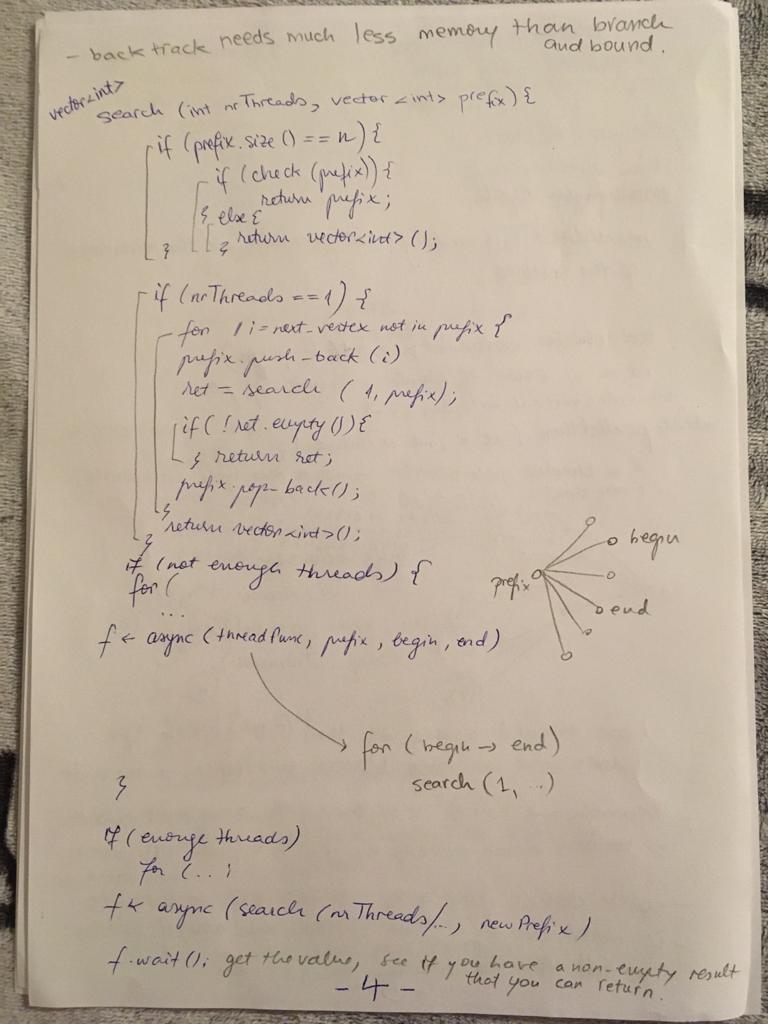 - back track needs much less memory than branch
and bound.
vector<int>
search (int nrThreads, vector <int> prefix) {
if (prefix.size () == n) {
if (check (prefix)) {
return prefix;
} else {
return vector<int> ();
}
}
if (nrThreads == 1) {
for / i = next-vertex not in prefix {
prefix.push-back (i)
ret = search ( 1, prefix);
if ( ! ret.empty ()) {
} return ret;
prefix.pop-back();
}
return vector<int>();
}
if (not enough threads) {
for (
...
prefix
begin
end
f ← async (threadFunc, prefix, begin, end)
for (begin → end)
search (1, ...)
}
if (enouge threads)
for (...;
f ← async (search (nrThreads/..., newPrefix)
f.wait(); get the value, see if you have a non-empty result
that you can return.
- 4 -